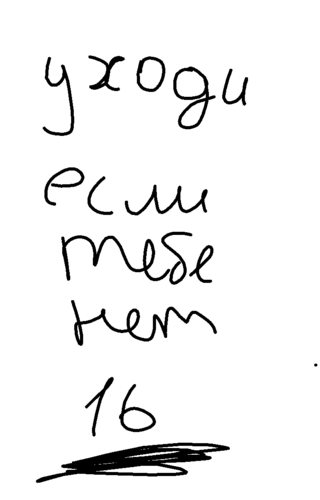 уходи
если
тебе
нет
16